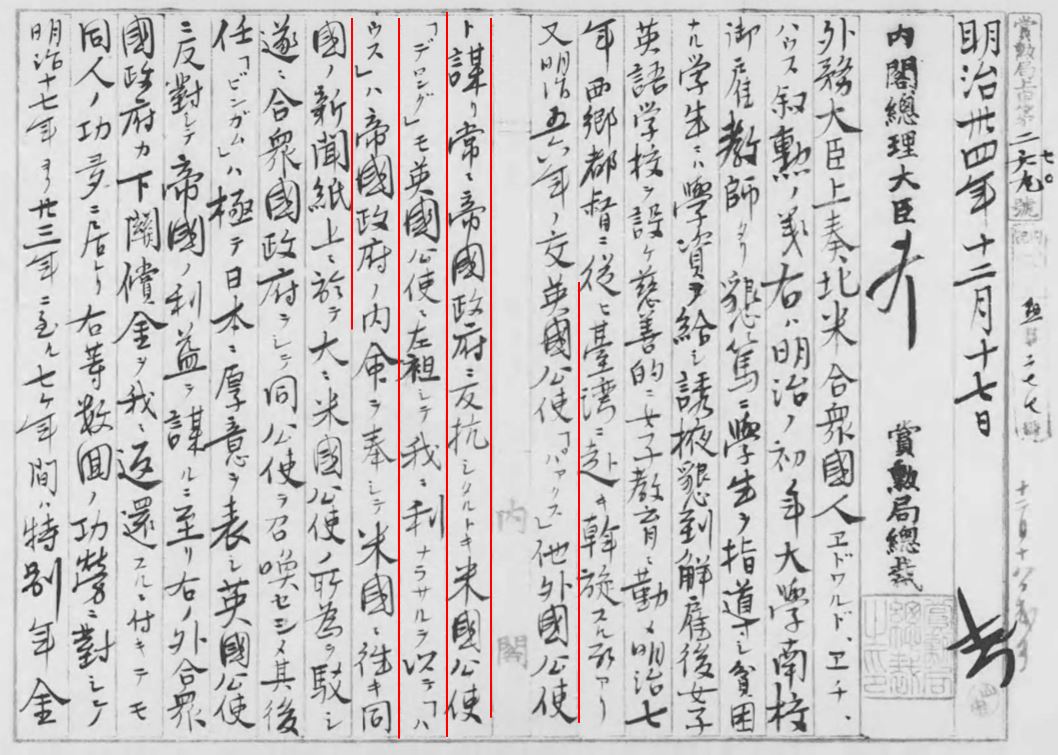 明治卅四年十二月十七日
内閣總理大臣
賞勲局總裁
外務大臣上奏北米合衆國人ヱドワルド、ヱチ、
ハウス叙勲ノ義右ハ明治ノ初年大學南校
御雇教師タリ懇篤ニ學生ヲ指導シ貧困
ナル学生ニハ學資ヲ給シ誘掖懇到解雇後女子
英語学校ヲ設ケ慈善的ニ女子教育ニ勤メ明治七
年西郷都督ニ従ヒ臺湾ニ赴キ斡旋スル所アリ
又明治五六年ノ交英國公使「パァクス」他外國公使
内閣
ト謀リ常ニ帝國政府ニ反抗シタルトキ米國公使
「デロング」モ英國公使ニ左袒シテ我ニ利ナラサルヲ以テ「ハ
ウス」ハ帝國政府ノ内命ヲ奉シテ米國ニ往キ同
國ノ新聞紙上ニ於テ大ニ米國公使ノ所為ヲ駁シ
遂ニ合衆國政府ヲシテ同公使ヲ召喚セシメ其後
任「ビンガム」ハ極テ日本ニ厚意ヲ表シ英國公使
ニ反對シテ帝國ノ利益ヲ謀ルニ至リ右ノ外合衆
國政府カ下關償金ヲ我ニ返還スルニ付キテモ
同人ノ功多ニ居ケリ右等数回ノ功勞ニ對シテ
明治十七年ヨリ卅三年ニ至ル七ヶ年間ハ特別年金